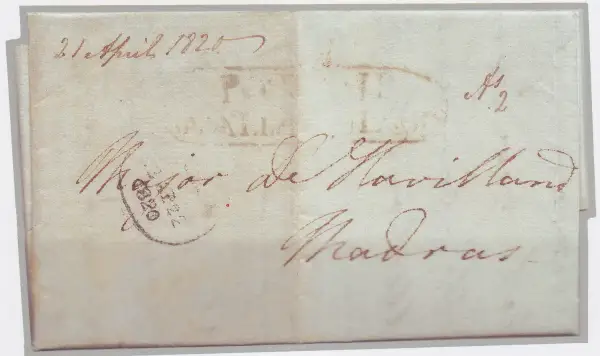 21 April 1820
As 2
Major De Havilland
Madras
AP 22
1820